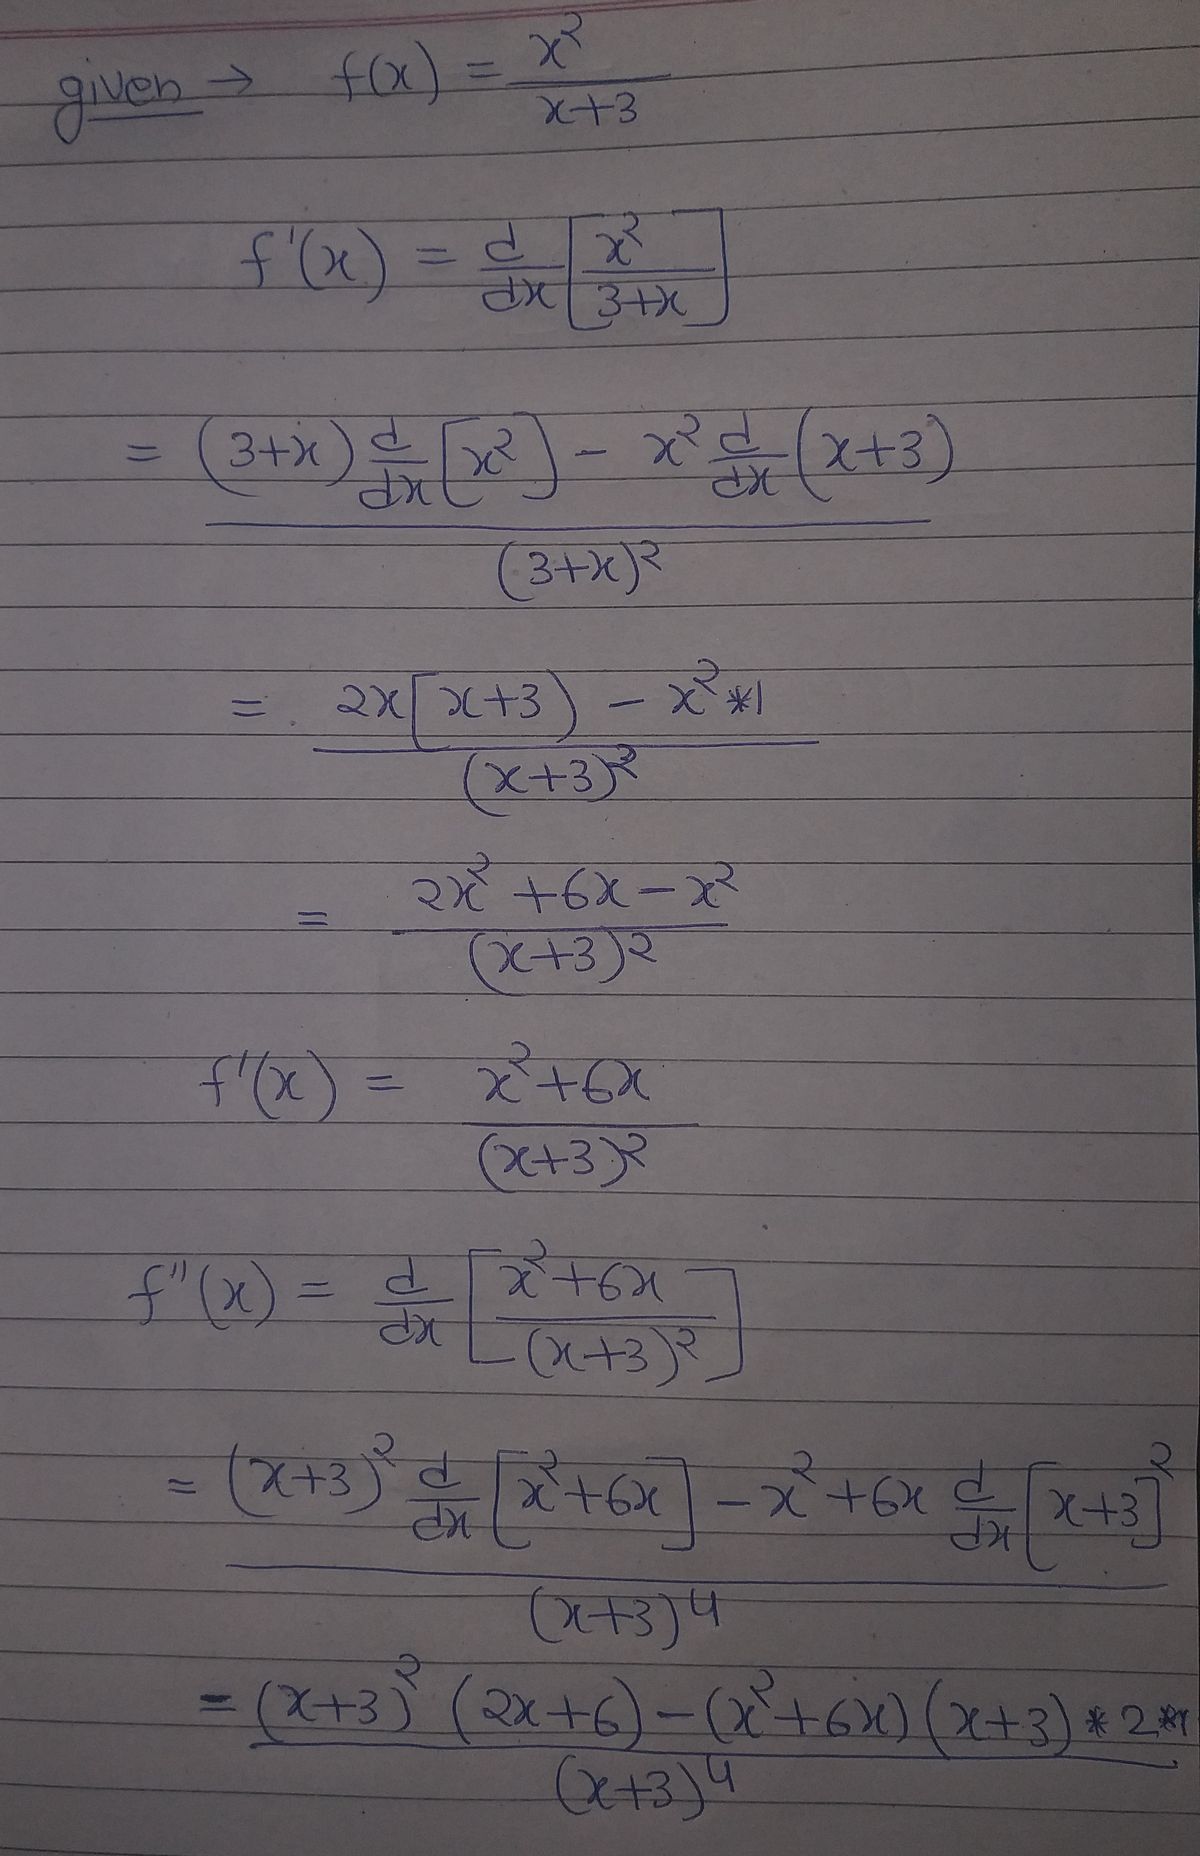 given → f(x) = x²/(x+3)
f'(x) = d/dx [x²/(3+x)]
= ((3+x) d/dx [x²] - x² d/dx (x+3))/(3+x)²
= (2x[x+3) - x² *1)/(x+3)²
= (2x² + 6x - x²)/(x+3)²
f'(x) = (x² + 6x)/(x+3)²
f''(x) = d/dx [(x² + 6x)/(x+3)²]
= ((x+3)² d/dx [x² + 6x] - x² + 6x d/dx [x+3]²)/(x+3)⁴
= ((x+3)² (2x+6) - (x² + 6x) (x+3) * 2 *1)/(x+3)⁴